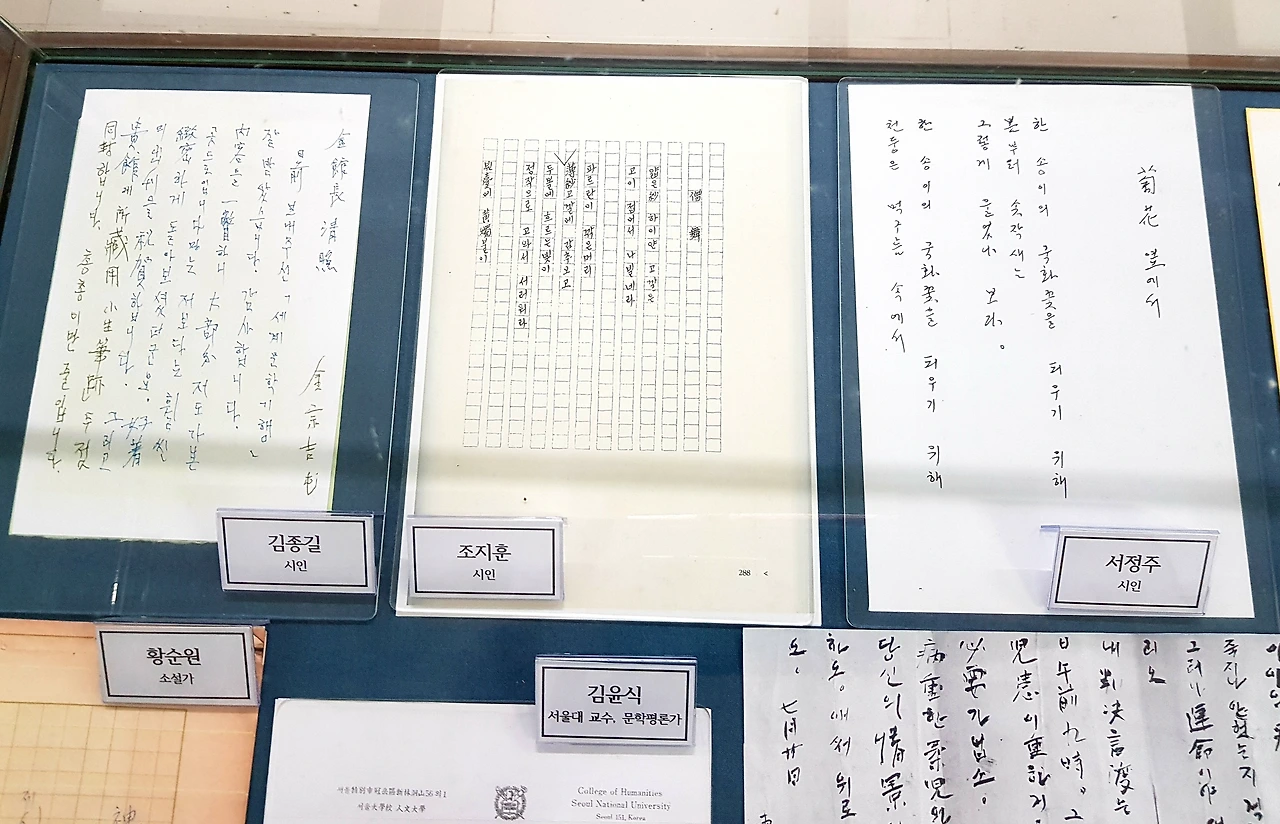 金館長 淸照
金宗吉
보내주신 「세계문학기행」
잘 받았습니다. 감사합니다.
内容을 一瞥하니 大部分 저도 가본
곳들입니다만는 저보다는 훨씬
緻密하게 돌아보셨더군요. 好著
祝賀합니다. 그리고
貴館에 所藏用 小生 筆跡 두점
同封합니다. 총총 이만 줄입니다.
김종길
시인
僧舞
얇은 紗 하이얀 고깔은
고이 접어서 나빌네라
파르란이 깎은 머리
薄紗 고깔에 감추오고
두볼에 흐르는 빛이
정작으로 고와서 서러워라
288 <
조지훈
시인
菊花 옆에서
한 송이의 국화꽃을 피우기 위해
봄부터 솟작새는
그렇게 울었나 보다。
한 송이의 국화꽃을 피우기 위해
천둥은 먹구름 속에서
서정주
시인
황순원
소설가
神
김윤식
서울대 교수, 문학평론가
서울特別市冠岳區新林洞山56의1
서울大學校 人文大學
College of Humanities
Seoul National University
Seoul 151, Korea
그러나 運命이야
내 判決言渡는
日午前九時。그
必要가 없소。
病重한
당신의 情景
하오。애써 위로
오。七月廿日